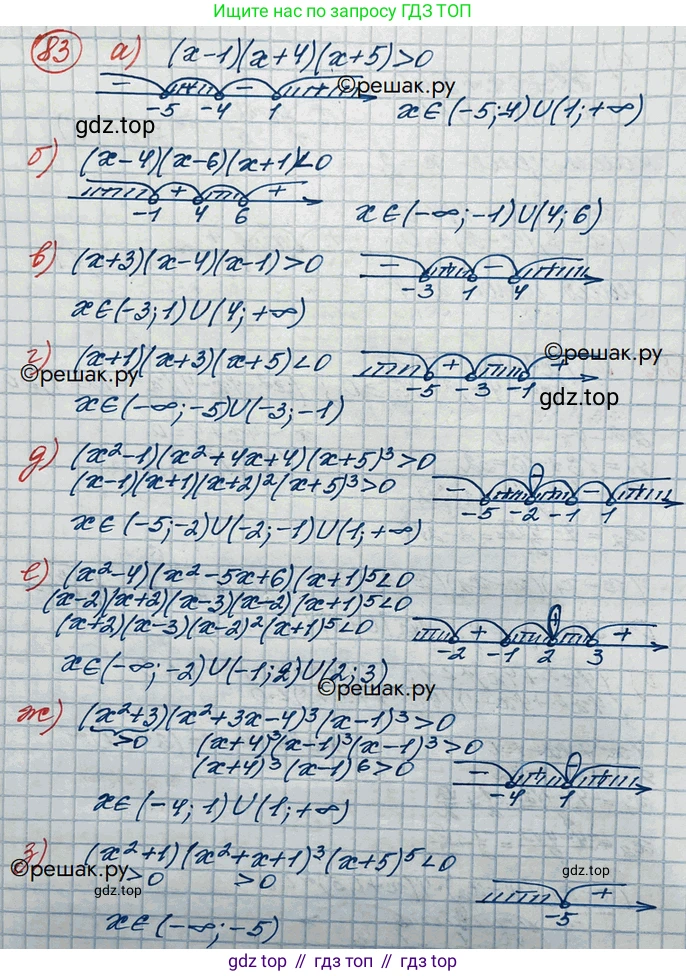 Ищите нас по запросу ГДЗ ТОП
83 а) (x-1)(x+4)(x+5)>0
- + - +
-5 -4 1
©решак.ру
gdz.top
x∈(-5;-4)∪(1;+∞)
б) (x-4)(x-6)(x+1)<0
+ +
-1 4 6
x∈(-∞;-1)∪(4;6)
в) (x+3)(x-4)(x-1)>0
- + -
-3 1 4
x∈(-3;1)∪(4;+∞)
г) (x+1)(x+3)(x+5)<0
+ +
-5 -3 -1
©решак.ру
©решак.ру
gdz.top
x∈(-∞;-5)∪(-3;-1)
д) (x²-1)(x²+4x+4)(x+5)³>0
(x-1)(x+1)(x+2)²(x+5)³>0
- + + - +
-5 -2 -1 1
x∈(-5;-2)∪(-2;-1)∪(1;+∞)
е) (x²-4)(x²-5x+6)(x+1)⁵<0
(x-2)(x+2)(x-3)(x-2)(x+1)⁵<0
(x+2)(x-3)(x-2)²(x+1)⁵<0
+ + +
-2 -1 2 3
x∈(-∞;-2)∪(-1;2)∪(2;3)
©решак.ру
ж) (x²+3)(x²+3x-4)³(x-1)³>0
>0 (x+4)³(x-1)³(x-1)³>0
(x+4)³(x-1)⁶>0
- + +
-4 1
x∈(-4;1)∪(1;+∞)
з) (x²+1)(x²+x+1)³(x+5)⁵<0
>0 >0
©решак.ру
gdz.top
gdz.top
+
-5
x∈(-∞;-5)
gdz.top // гдз.топ // гдз топ